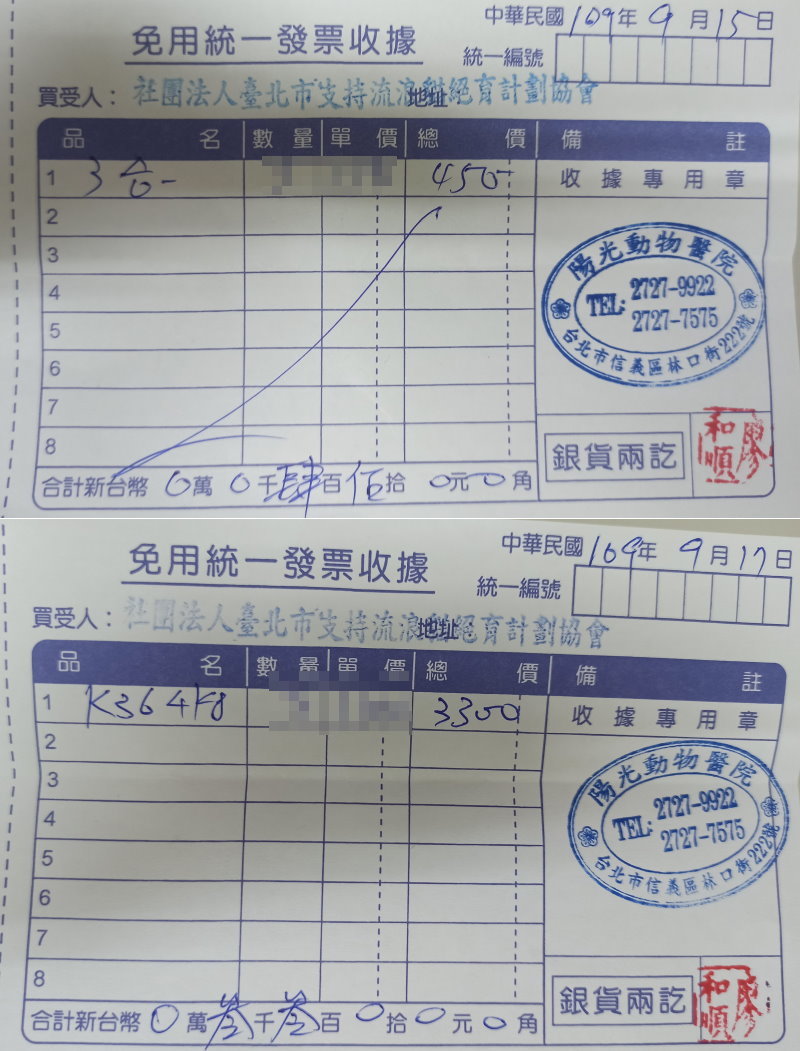 中華民國109年9月15日
免用統一發票收據
統一編號
買受人：社團法人臺北市支持流浪貓絕育計劃協會
地址
品名 數量 單價 總價 備註
1 3合一 450 收據專用章
2
3
4
5
6
7
8
陽光動物醫院
TEL: 2727-9922
2727-7575
台北市信義區林口街222號
銀貨兩訖
廖和順
合計新台幣 0萬 0千肆百 拾 0元0角
中華民國109年9月17日
免用統一發票收據
統一編號
買受人：社團法人臺北市支持流浪貓絕育計劃協會
地址
品名 數量 單價 總價 備註
1 K36 4K8 3300 收據專用章
2
3
4
5
6
7
8
陽光動物醫院
TEL: 2727-9922
2727-7575
台北市信義區林口街222號
銀貨兩訖
廖和順
合計新台幣 0萬叁千叁百 0拾 0元 0角